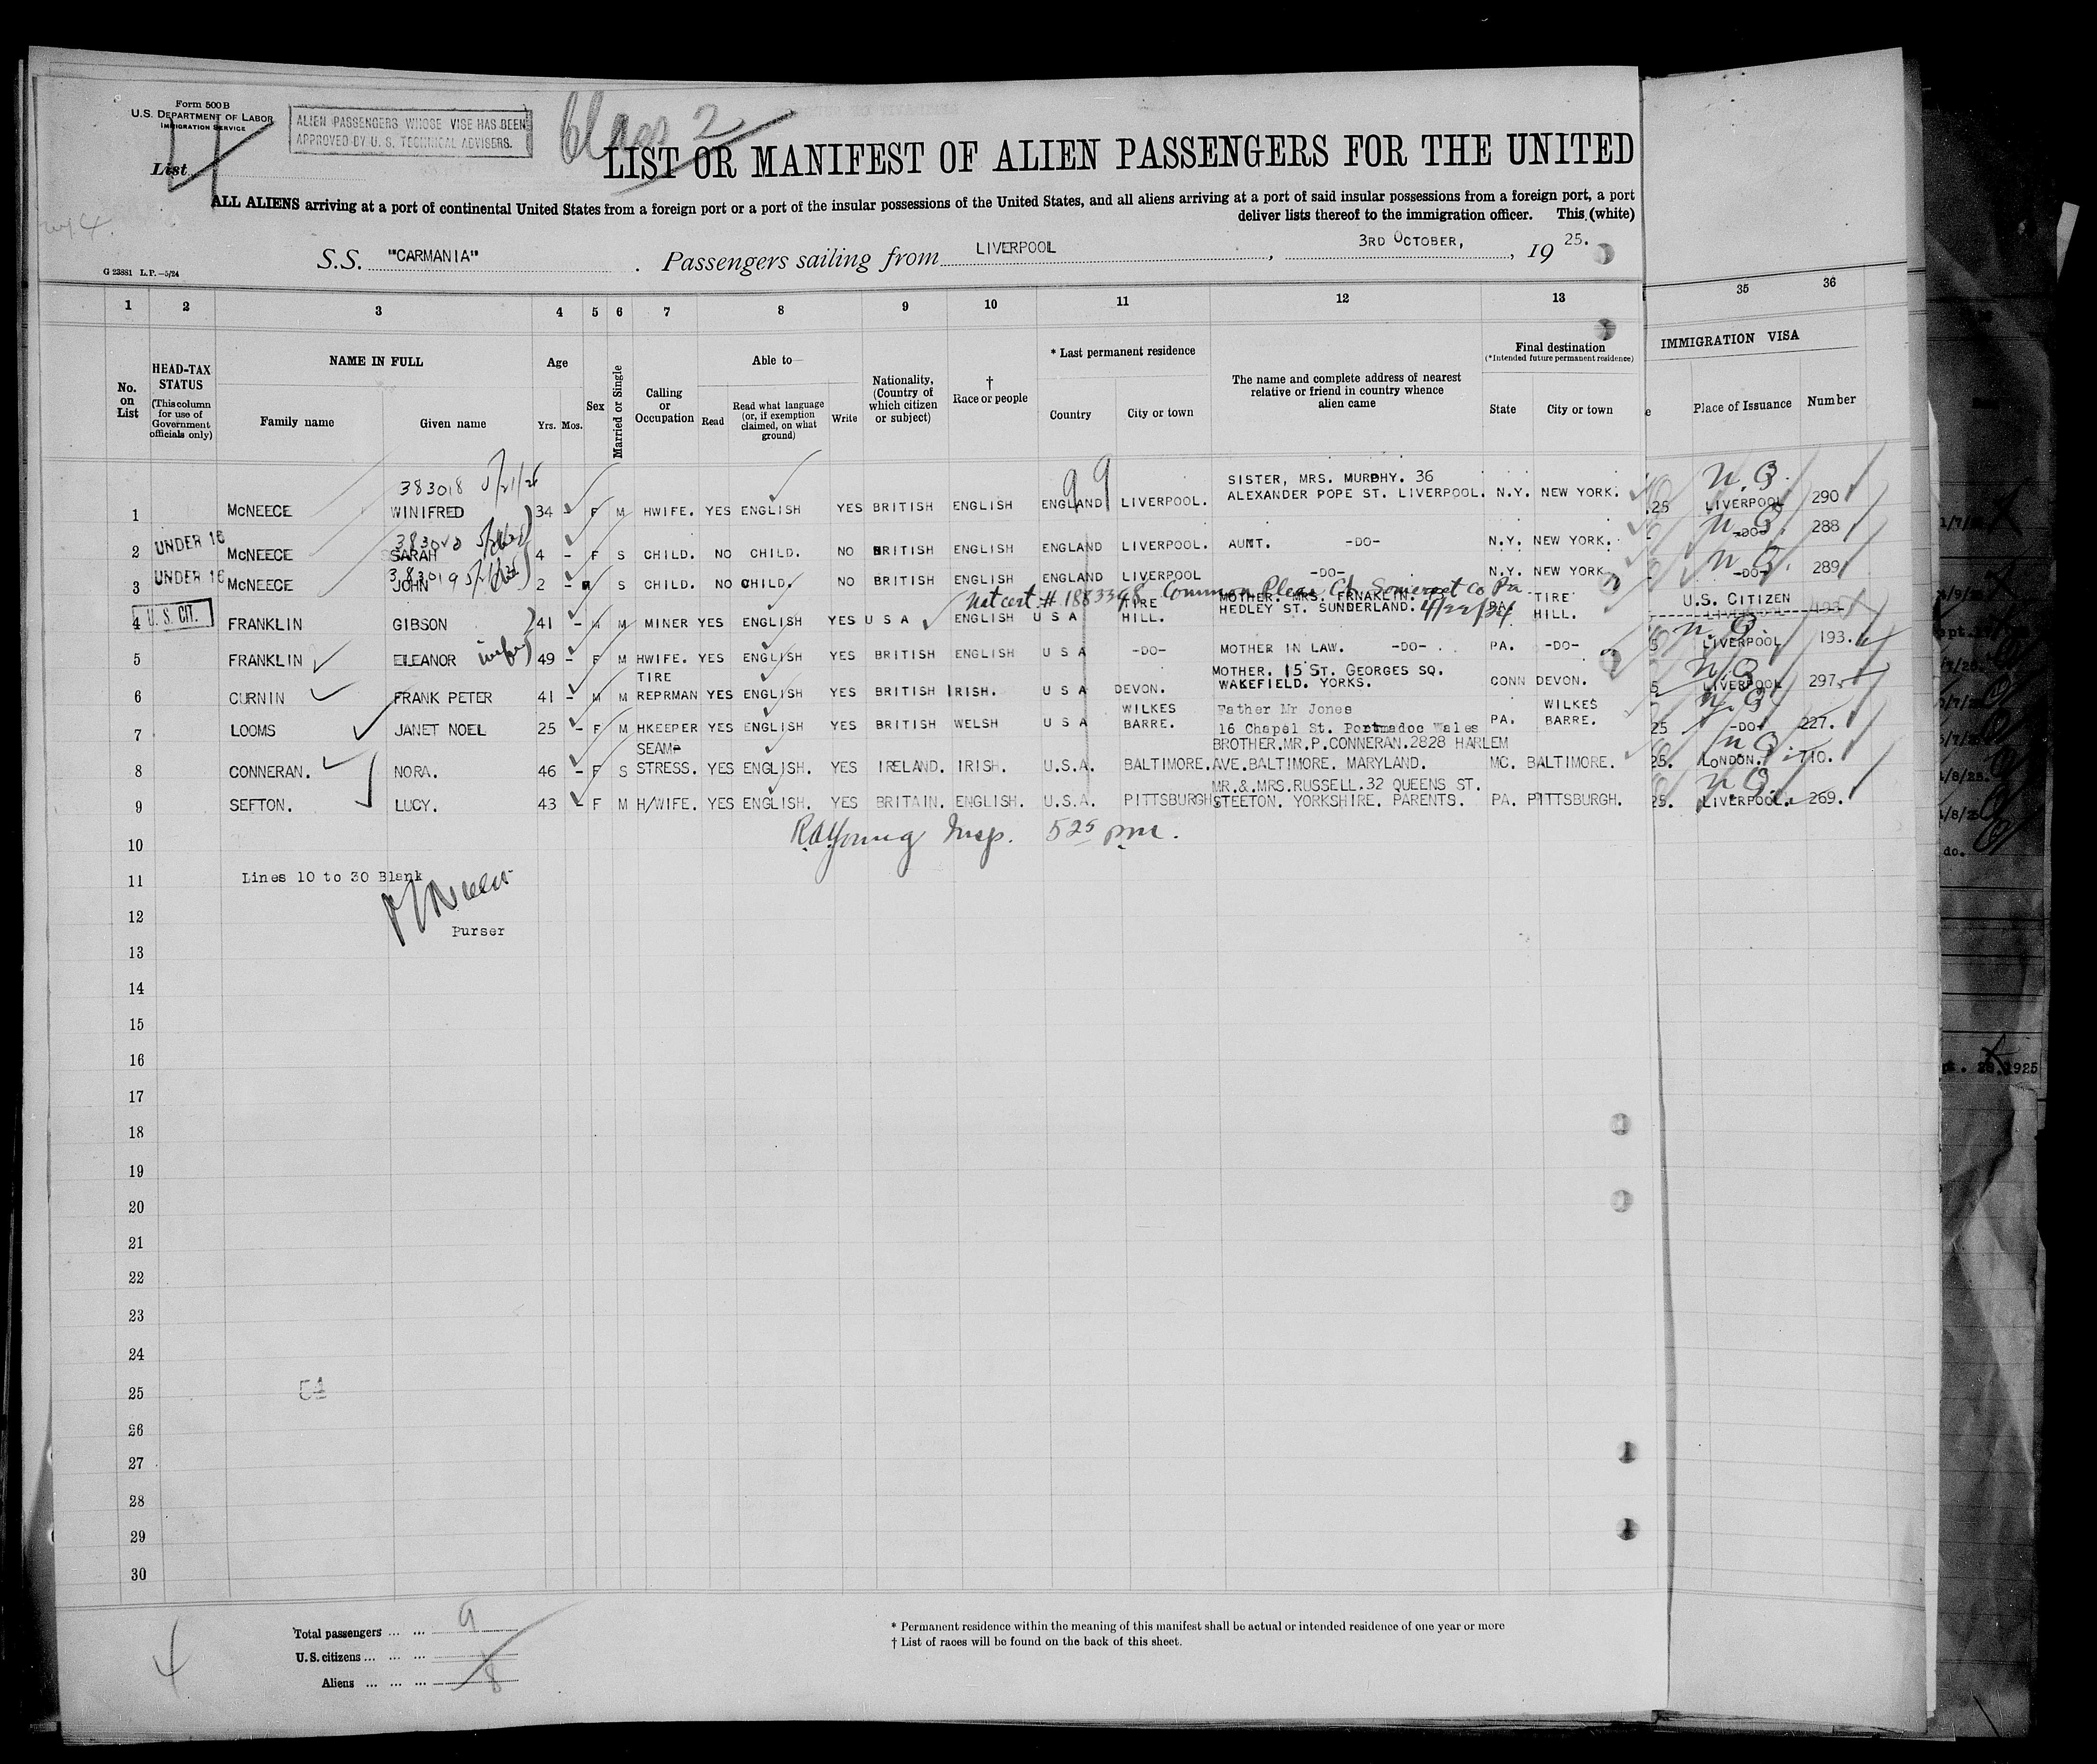 Form 500 B
U.S. DEPARTMENT OF LABOR
IMMIGRATION SERVICE
ALIEN PASSENGERS WHOSE VISE HAS BEEN
APPROVED BY U. S. TECHNICAL ADVISERS.
Class 2
List
LIST OR MANIFEST OF ALIEN PASSENGERS FOR THE UNITED
ALL ALIENS arriving at a port of continental United States from a foreign port or a port of the insular possessions of the United States, and all aliens arriving at a port of said insular possessions from a foreign port, a port
deliver lists thereof to the immigration officer. This (white)
S.S. "CARMANIA". Passengers sailing from LIVERPOOL, 3RD OCTOBER, 19 25.
G 23881 L.P.—5/24
1 2 3 4 5 6 7 8 9 10 11 12 13 35 36
No. on List
HEAD-TAX STATUS
(This column for use of Government officials only)
NAME IN FULL
Family name Given name
Age
Yrs. Mos.
Sex
Married or Single
Calling or Occupation
Able to—
Read
Read what language (or, if exemption claimed, on what ground)
Write
Nationality, (Country of which citizen or subject)
† Race or people
* Last permanent residence
Country City or town
The name and complete address of nearest relative or friend in country whence alien came
Final destination
(*Intended future permanent residence)
State City or town
IMMIGRATION VISA
Place of Issuance Number
383018 5/21/26
1 McNEECE WINIFRED 34 F M HWIFE. YES ENGLISH YES BRITISH ENGLISH ENGLAND LIVERPOOL. SISTER, MRS. MURPHY. 36 ALEXANDER POPE ST. LIVERPOOL. N.Y. NEW YORK. .25 LIVERPOOL 290
2 UNDER 16 McNEECE SARAH 4 - F S CHILD. NO CHILD. NO BRITISH ENGLISH ENGLAND LIVERPOOL. AUNT. -DO- N.Y. NEW YORK. -DO- 288
383019
3 UNDER 16 McNEECE JOHN 2 - M S CHILD. NO CHILD. NO BRITISH ENGLISH ENGLAND LIVERPOOL -DO- N.Y. NEW YORK -DO- 289
Nat cert. # 1883398 Common Pleas Ct. Somerset Co Pa 4/22/24
4 U. S. CIT. FRANKLIN GIBSON 41 - M M MINER YES ENGLISH YES U S A ENGLISH U S A TIRE HILL. MOTHER. MRS. FRNAKLIN. HEDLEY ST. SUNDERLAND. PA. TIRE HILL. U.S. CITIZEN
5 FRANKLIN ELEANOR wife 49 - F M HWIFE. YES ENGLISH YES BRITISH ENGLISH U S A -DO- MOTHER IN LAW. -DO- PA. -DO- 5 LIVERPOOL 193.
6 CURNIN FRANK PETER 41 - M M TIRE REPRMAN YES ENGLISH YES BRITISH IRISH. U S A DEVON. MOTHER. 15 ST. GEORGES SQ. WAKEFIELD. YORKS. CONN DEVON. 5 LIVERPOOL 297.
7 LOOMS JANET NOEL 25 - F M HKEEPER YES ENGLISH YES BRITISH WELSH U S A WILKES BARRE. Father Mr Jones 16 Chapel St. Portmadoc Wales PA. WILKES BARRE. 25 -DO- 227.
8 CONNERAN. NORA. 46 - F S SEAMP STRESS. YES ENGLISH. YES IRELAND. IRISH. U.S.A. BALTIMORE. BROTHER.MR.P.CONNERAN.2828 HARLEM AVE.BALTIMORE. MARYLAND. MC. BALTIMORE. 25. LONDON. 1710.
9 SEFTON. LUCY. 43 - F M H/WIFE. YES ENGLISH. YES BRITAIN. ENGLISH. U.S.A. PITTSBURGH. MR.&.MRS.RUSSELL.32 QUEENS ST. STEETON. YORKSHIRE. PARENTS. PA. PITTSBURGH. 25. LIVERPOOL. 269.
10
R A Young Insp. 5 25 pm.
11 Lines 10 to 30 Blank
12
Purser
13
14
15
16
17
18
19
20
21
22
23
24
25
26
27
28
29
30
Total passengers ... ... 9
U.S. citizens ... ... ...
Aliens ... ... ... 8
* Permanent residence within the meaning of this manifest shall be actual or intended residence of one year or more
† List of races will be found on the back of this sheet.